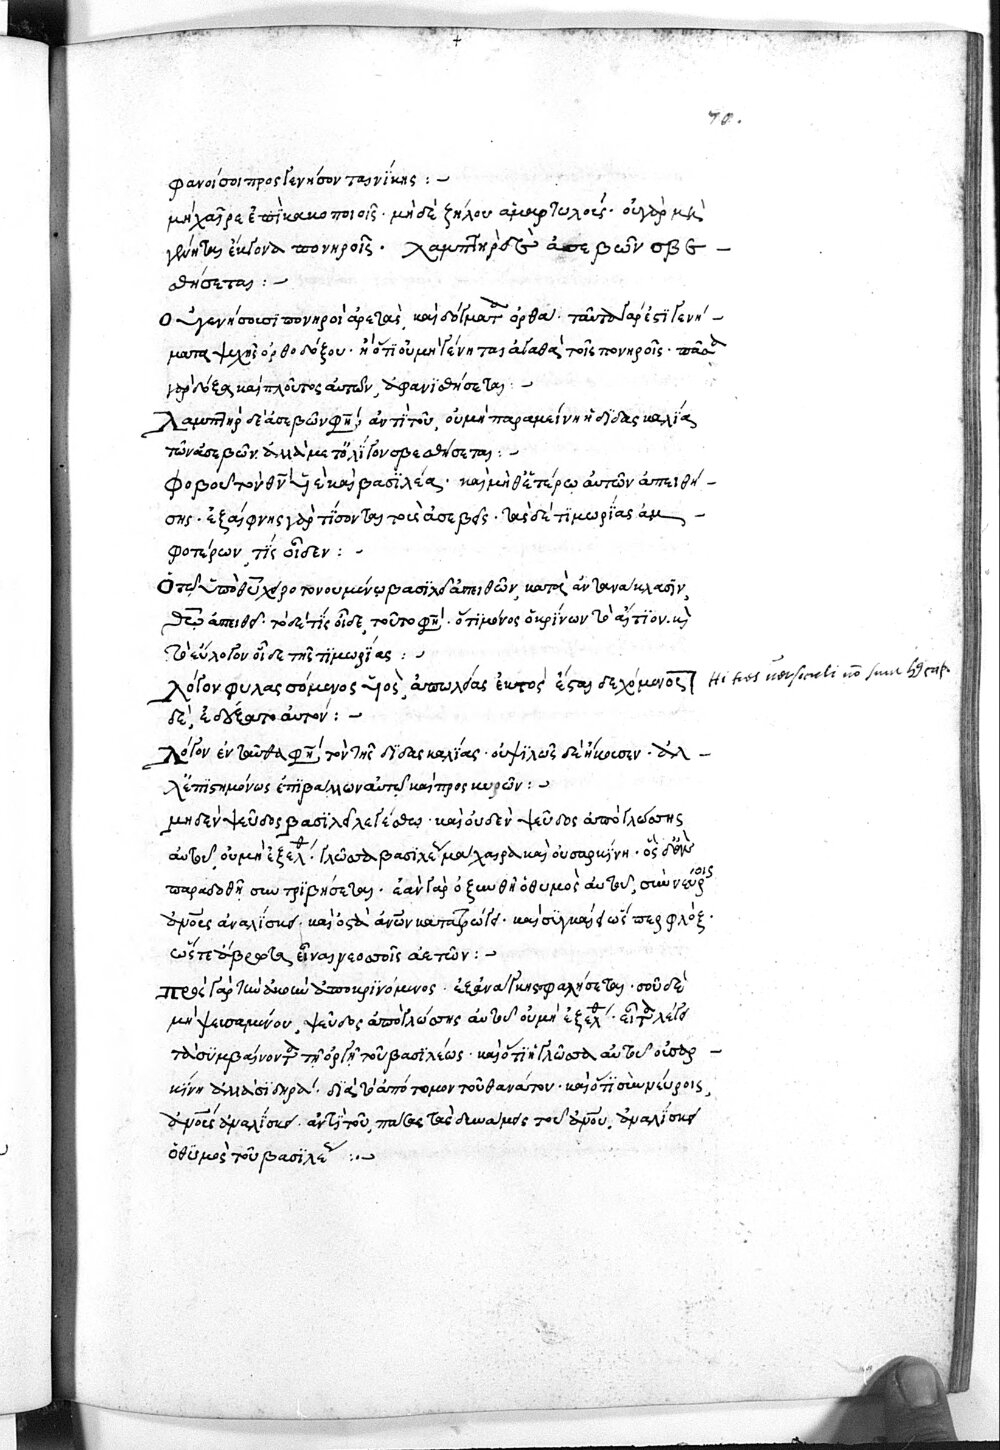 70.
φανοί σοι προσγενήσονται νίκης : –
μὴ χαῖρε ἐπὶ κακοποιοῖς · μὴ δὲ ζήλου ἁμαρτωλούς · οὐ γὰρ μὴ
γένηται ἔκγονα πονηροῖς · λαμπτὴρ δὲ ἀσεβῶν σβε –
σθήσεται : –
Οὐ γενήσονται πονηροὶ ἀρετὰς, καὶ δόγματα ὀρθά · ταῦτα γάρ ἐστι γενή –
ματα ψυχῆς ὀρθοδόξου · ἢ ὅτι οὐ μὴ γένηται ἀγαθὰ τοῖς πονηροῖς · πᾶσα
γὰρ δόξα καὶ πλοῦτος αὐτῶν, ἀφανισθήσεται · –
Λαμπτὴρ δὲ ἀσεβῶν φησὶ, ἀντὶ τοῦ, οὐ μὴ παραμείνη ἡ διδασκαλία
τῶν ἀσεβῶν, ἀλλὰ μετ' ὀλίγον σβεσθήσεται : –
φοβοῦ τὸν θν̄ υἱὲ καὶ βασιλέα · καὶ μὴ θετέρω αὐτῶν ἀπειθή –
σης · ἐξαίφνης γὰρ τίσονται τοὺς ἀσεβεῖς · τὰς δὲ τιμωρίας ἀμ –
φοτέρων, τίς οἶδεν : –
Ὁ τῷ ὑπὸ θῡ χειροτονουμένω βασιλεῖ ἀπειθῶν, κατὰ ἀντανάκλασιν,
θεῶ ἀπειθεῖ · τὸ δὲ τίς οἶδε, τοῦτο φησὶ · ὅτι μόνος ὁ κρίνων τὸ αἴτιον κὶ
τὸ εὔλογον οἶδε τῆς τιμωρίας : –
Λόγον φυλασσόμενος υἱὸς, ἀπωλείας ἐκτὸς ἔσται δεχόμενος Hi tres uersiculi nō sunt
δὲ, ἐδέξατο αὐτόν : –
Λόγον ἐνταῦθα φησὶ, τὸν τῆς διδασκαλίας · οὐ ψιλῶς δὲ ἤκουσεν · ἀλ –
λ' ἐπιστημόνως ἐπιβάλλων αὐτῶ καὶ προσκυρῶν : –
μηδὲν ψεῦδος βασιλεῖ λεγέσθω · καὶ οὐδὲν ψεῦδος ἀπὸ γλώσσης
αὐτοῦ, οὐ μὴ ἐξέλθη · γλῶσσα βασιλέως μάχαιρα καὶ οὐ σαρκίνη · ὃς δ' ἂν
παραδοθῆ συντριβήσεται · ἐὰν γὰρ ὀξυνθῆ ὁ θυμὸς αὐτοῦ, σὺν νεύροις
ἀνο̄υς ἀναλίσκει · καὶ ὀστᾶ ἀνῶν κατατρώγει · καὶ συγκαίει ὥσπερ φλόξ ·
ὥστε ἄβρωτα εἶναι νεοσσοῖς ἀετῶν : –
Πρὸς γὰρ τὴν ἀκοὴν ἀποκρινόμενος · ἐξ ἀνάγκης σφαλήσεται · σοῦ δὲ
μὴ ψευσαμένου, ψεῦδος ἀπὸ γλώσσης αὐτοῦ οὐ μὴ ἐξέλθη · εἶτα λέγει
τὰ συμβαίνοντα τῆ ὀργῆ τοῦ βασιλέως · καὶ ὅτι ἡ γλῶσσα αὐτοῦ οὐ σαρ –
κίνη ἀλλὰ σιδηρᾶ · διὰ τὸ ἀπότομον τοῦ θανάτου · καὶ ὅτι σὺν νεύροις,
ἀνο̄υς ἀναλίσκει · ἀντὶ τοῦ, πάσας τὰς δυνάμεις τοῦ ἀνο̄υ, ἀναλίσκει
ὁ θυμὸς τοῦ βασιλέως : –